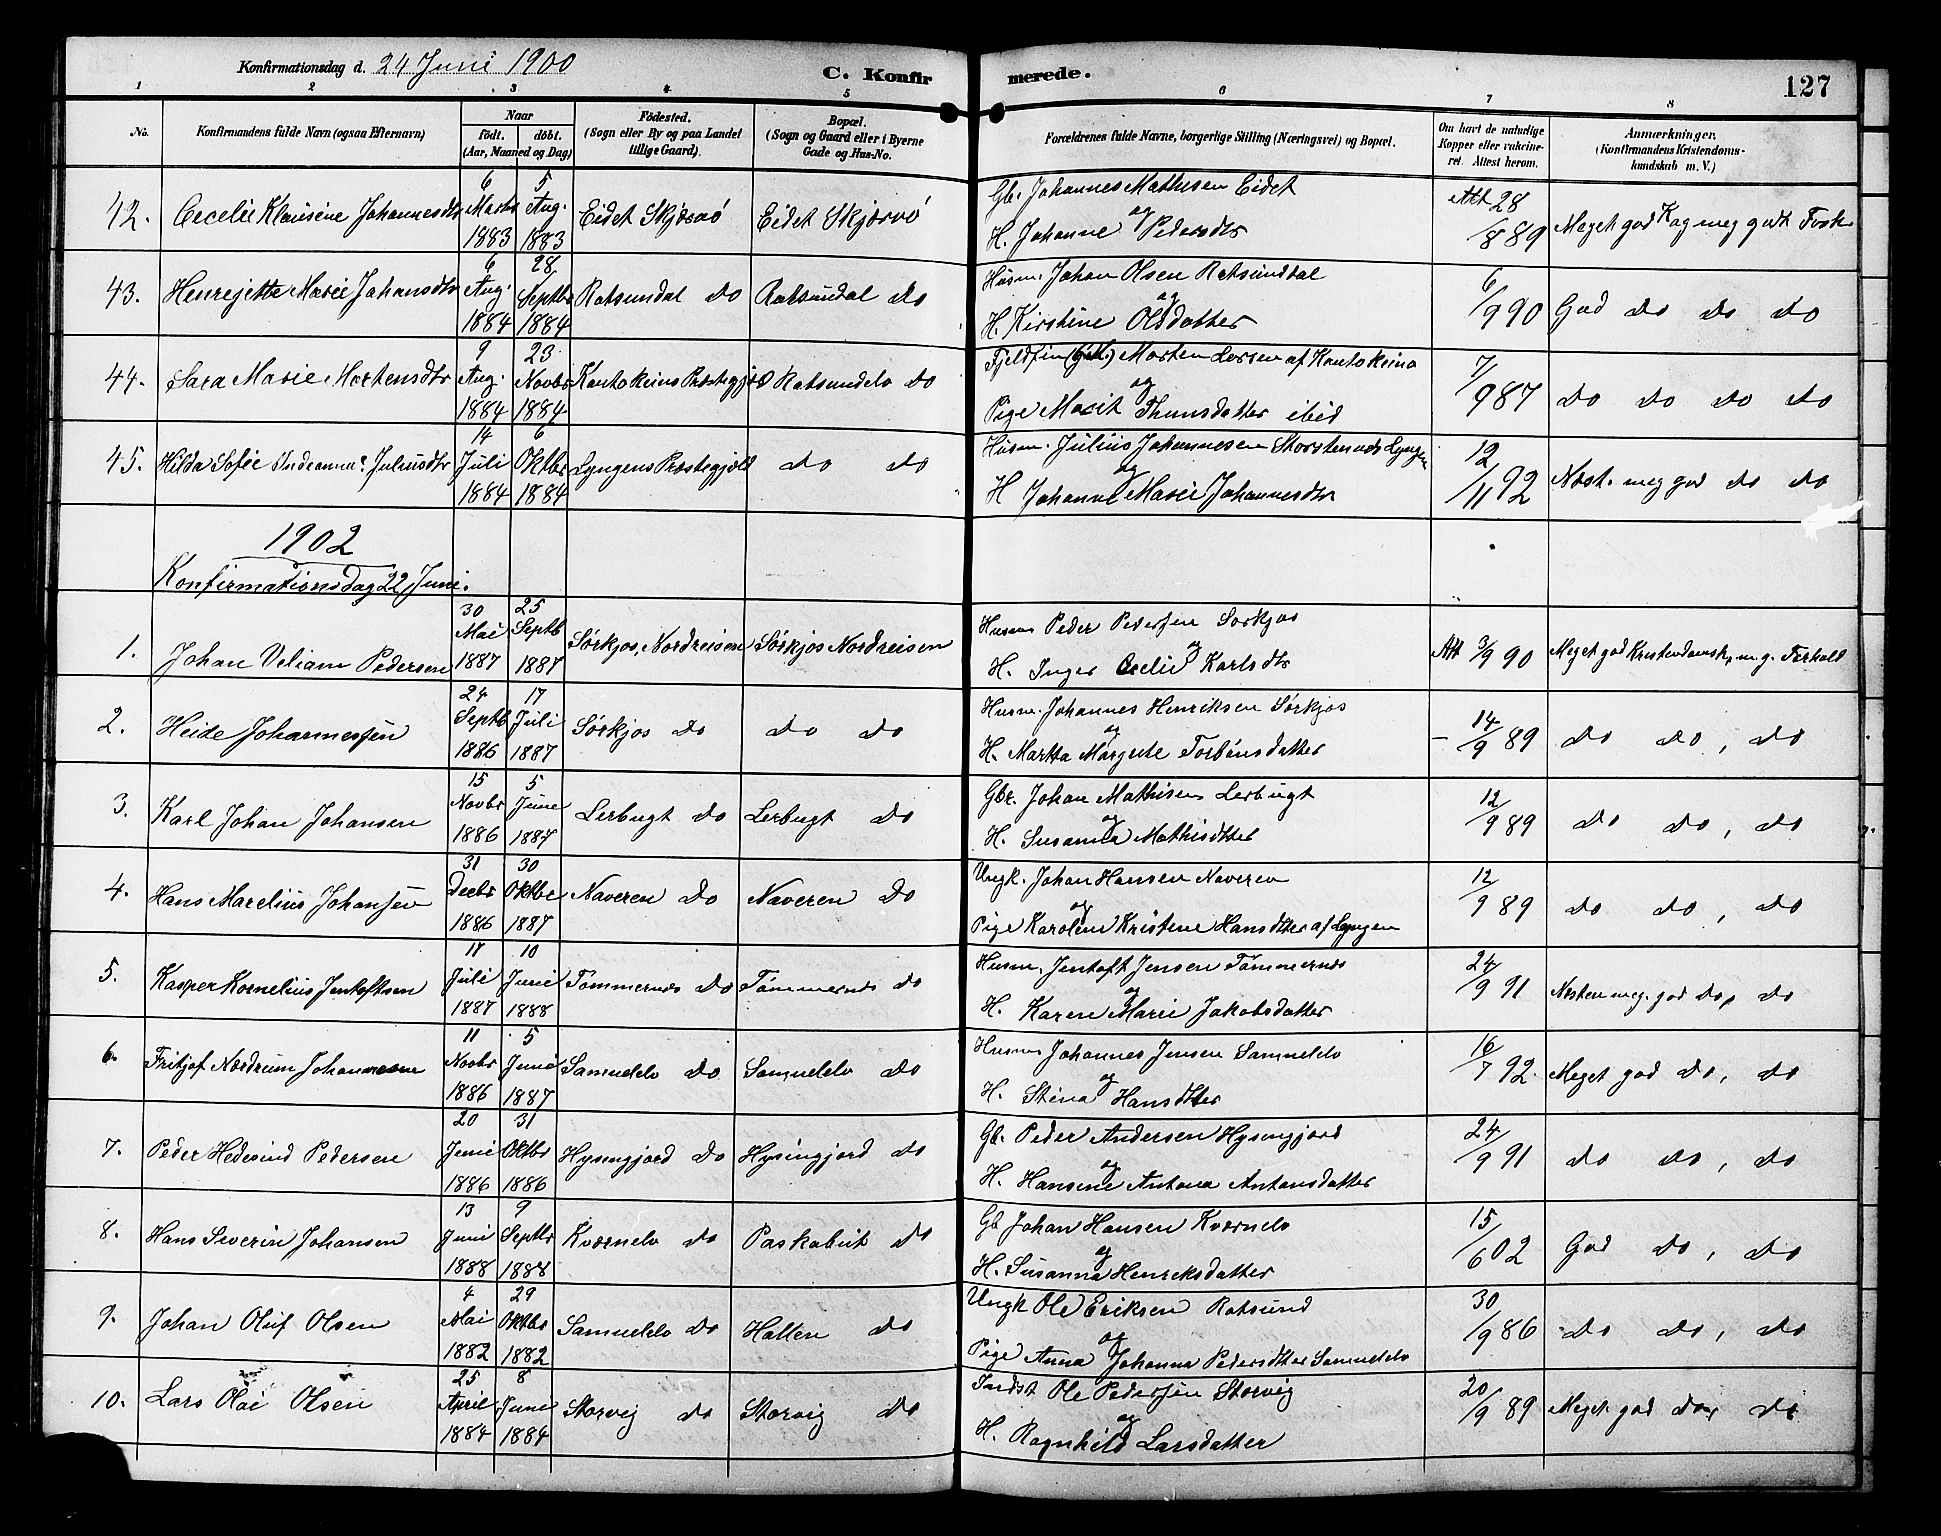 Konfirmationsdag d. 24 Juni 1900
C. Konfirmerede.
127
1 2 3 4 5 6 7 8
No.
Konfirmandens fulde Navn (ogsaa Efternavn)
Naar
födt. döbt.
(Aar, Maaned og Dag)
Födested.
(Sogn eller By og paa Landet
tillige Gaard).
Bopæl.
(Sogn og Gaard eller i Byerne
Gade og Hus-No.
Forældrenes fulde Navne, borgerlige Stilling (Næringsvei) og Bopæl.
Om havt de naturlige
Kopper eller vakcine-
ret. Attest herom.
Anmærkninger.
(Konfirmandens Kristendoms-
kundskab m. V.)
42. Cecelie Klausine Johannesdtr 6 Marts 1883 5 Aug. 1883 Eidet Skjærvö Eidet Skjærvö
Gb. Johannes Mathisen Eidet
og
H. Johanne Pedersdtr
Att 28/8 89 Meget god K og meg godt Forh.
43. Henrejette Marie Johansdtr 6 Aug. 1884 28 Septbr 1884 Rotsundal do Rotsundal do
Husm. Johan Olsen Rotsundal
og
H. Kirstine Olsdatter
6/9 90 God do do do
44. Sara Marie Mortensdtr 9 Aug. 1884 23 Novbr 1884 Kautokeino Præstegjæld Rotsundelv do
Fjeldfin (Gift) Morten Larsen af Kautokeino
og
Pige Marit Thomsdatter ibid
7/9 87 do do do do
45. Hilda Sofie Indeanna Juliusdtr 14 Juli 1884 6 Oktbr 1884 Lyngens Præstegjæld do do
Husm. Julius Johannesen Storstennes Lyngen
og
H Johanne Marie Johannesdtr
12/11 92 Næst. meg god do do
1902
Konfirmationsdag 22 Juni.
1. Johan Veliam Pedersen 30 Mai 1887 25 Septb 1887 Sörkjos, Nordreisen Sörkjos Nordreisen
Husm Peder Pedersen Sorkjos
og
H. Inger Cecelie Karlsdtr
Att 3/9 90 Meget god Kristendomsk, m. g. Forhold
2. Heide Johannessen 24 Septb 1886 17 Juli 1887 Sörkjos do do do
Husm. Johannes Henriksen Sörkjos
og
H. Martta Margrete Torbönsdatter
- 14/9 89 do do, do
3. Karl Johan Johansen 15 Novbr 1886 5 June 1887 Lerbugt do Lerbugt do
Gbr. Johan Mathisen Lerbugt
og
H. Susanna Mathisdtter
12/9 89 do do, do
4. Hans Marelius Johansen 31 Decbr 1886 30 Oktbr 1887 Naveren do Naveren do
Ungk. Johan Hansen Naveren
og
Pige Karoline Kristene Hansdtter af Lyngen
12/9 89 do do, do
5. Kasper Kornelius Jentoftsen 17 Juli 1887 10 Juni 1888 Tömmernes do Tömmernes do
Husm. Jentoft Jensen Tömmernes
og
H. Karen Marie Jakobsdatter
24/9 91 Næsten meg. god do, do
6. Fritjof Nordrum Johannesen 11 Novbr 1886 5 Juni 1887 Samuelelv do Samuelelv do
Husm Johannes Jensen Samuelelv
og
H. Stina Hansdtter
16/7 92. Meget god do, do
7. Peder Hedevind Pedersen 20 Juni 1886 31 Oktbr 1886 Hysingjord do Hysingjord do
Gb. Peder Andersen Hysingjord
og
H. Hansine Antona Antonsdatter
24/9 91 do do, do
8. Hans Severin Johansen 13 Juni 1888 9 Septbr 1888 Kvernelv do Paskabut do
Gb Johan Hansen Kvernelv
og
H. Susanna Henreksdatter
15/6 02 God do, do
9. Johan Oluf Olsen 4 Mai 1882 29 Oktbr 1882 Samuelelv do Hatten do
Ungk Ole Eriksen Rotsund
og
Pige Anna Johanna Pedersdtter Samuelelv
30/9 86 do do, do
10. Lars Olai Olsen 25 April 1884 8 Juni 1884 Storvig do Storvig do
Indst Ole Pedersen Storvig
og
H. Ragnhild Larsdatter
20/9 89 Meget god do, do